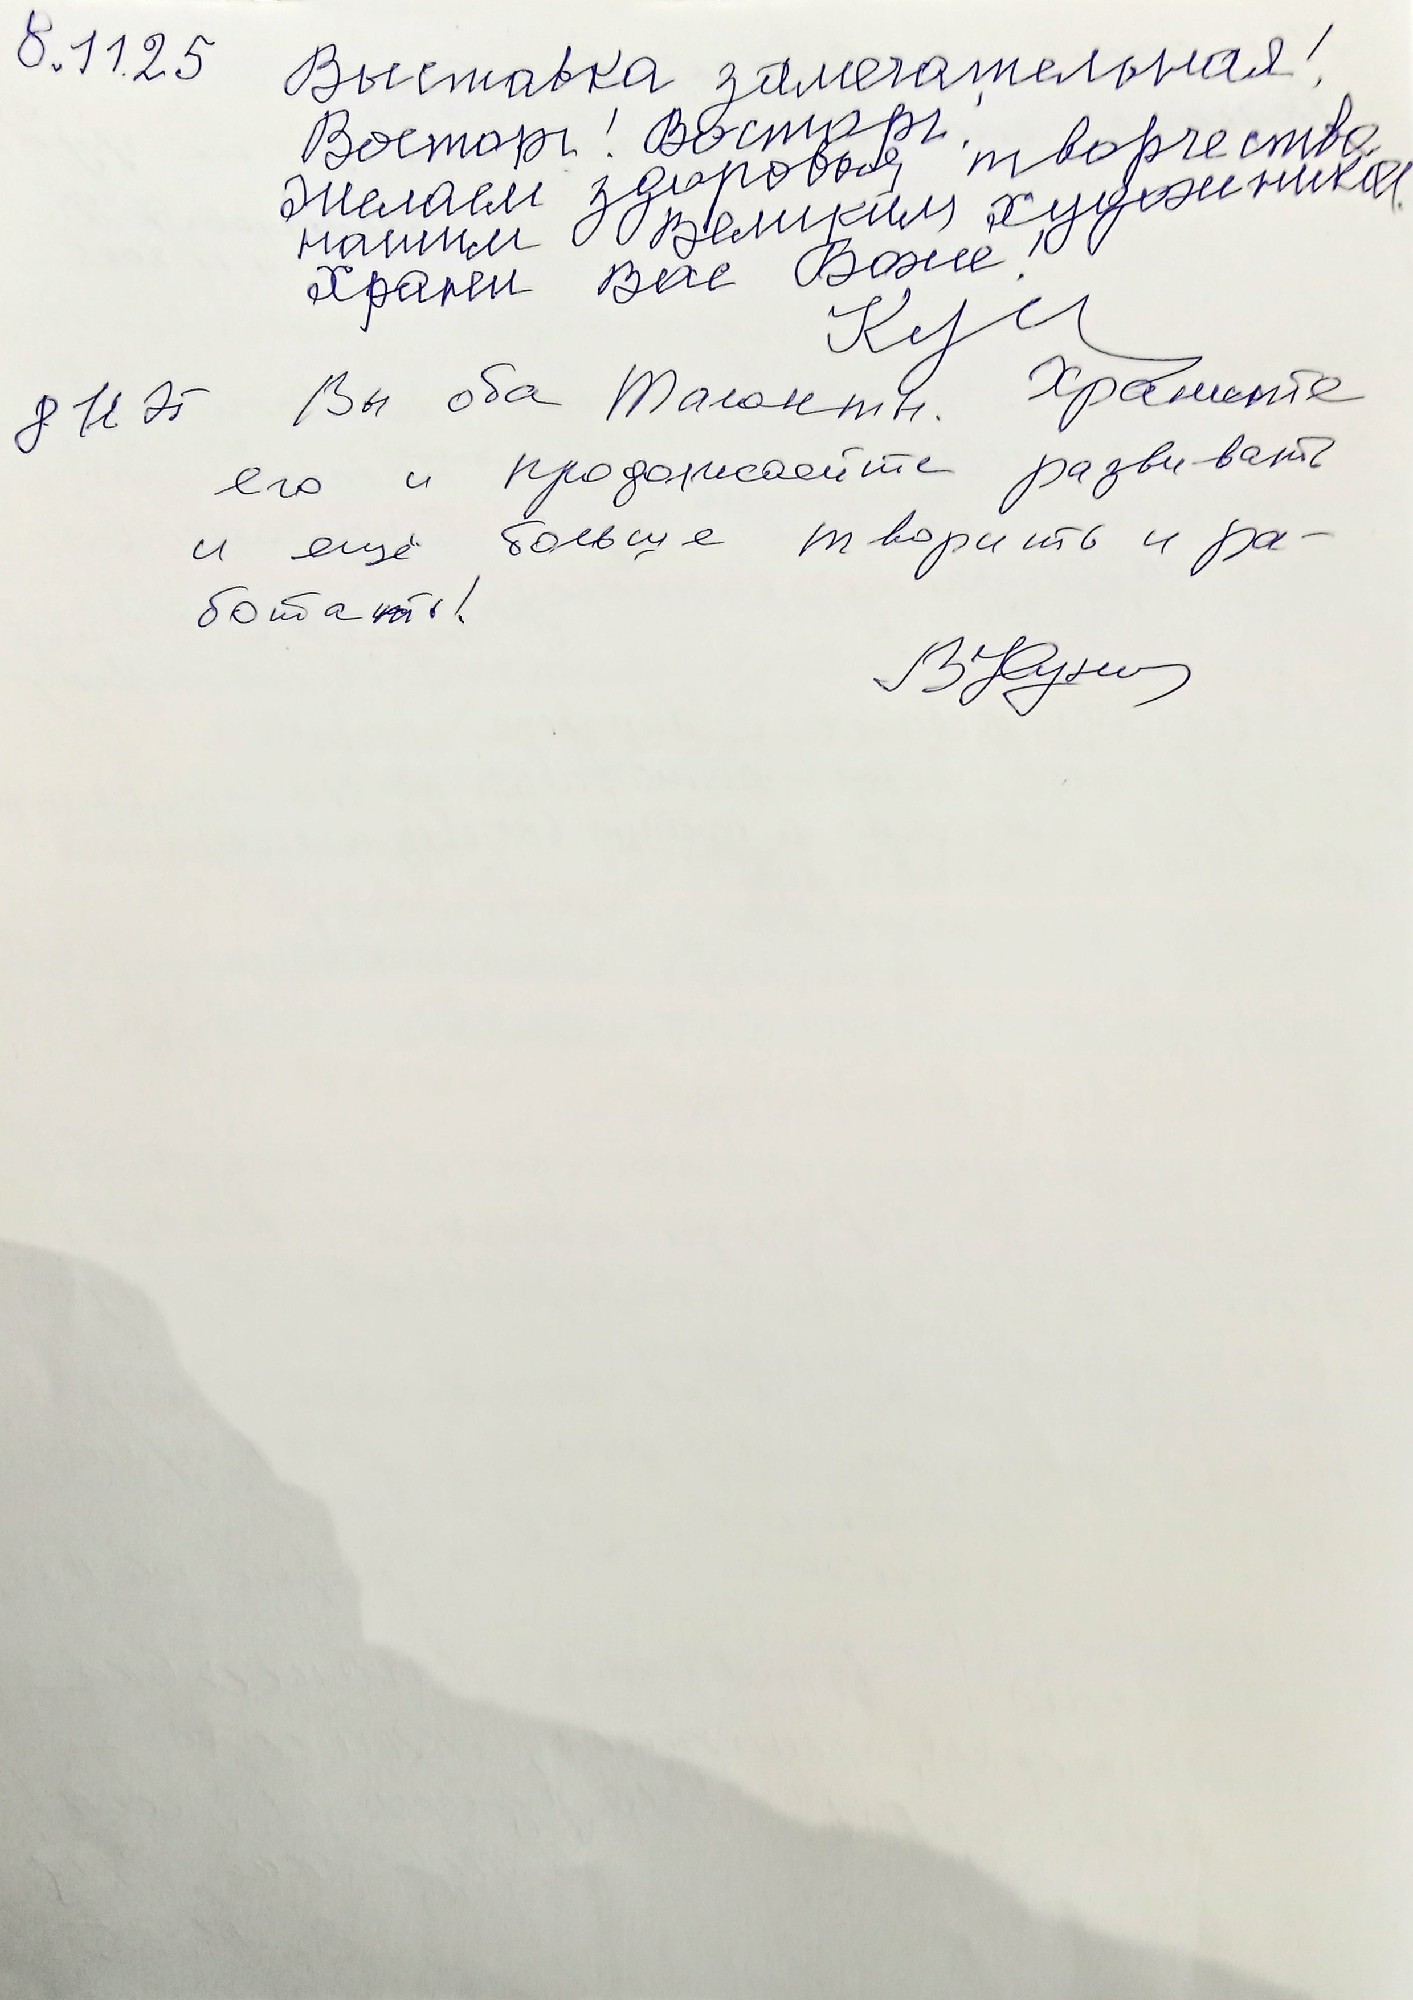 8.11.25 Выставка замечательная!
Восторг! Восторг!
Желаем здоровья, творчества
нашим великим художникам.
Храни Вас Боже!
8 11 25 Вы оба Таланты. Храните
его и продолжайте развивать
и ещё больше творить и ра-
ботать!